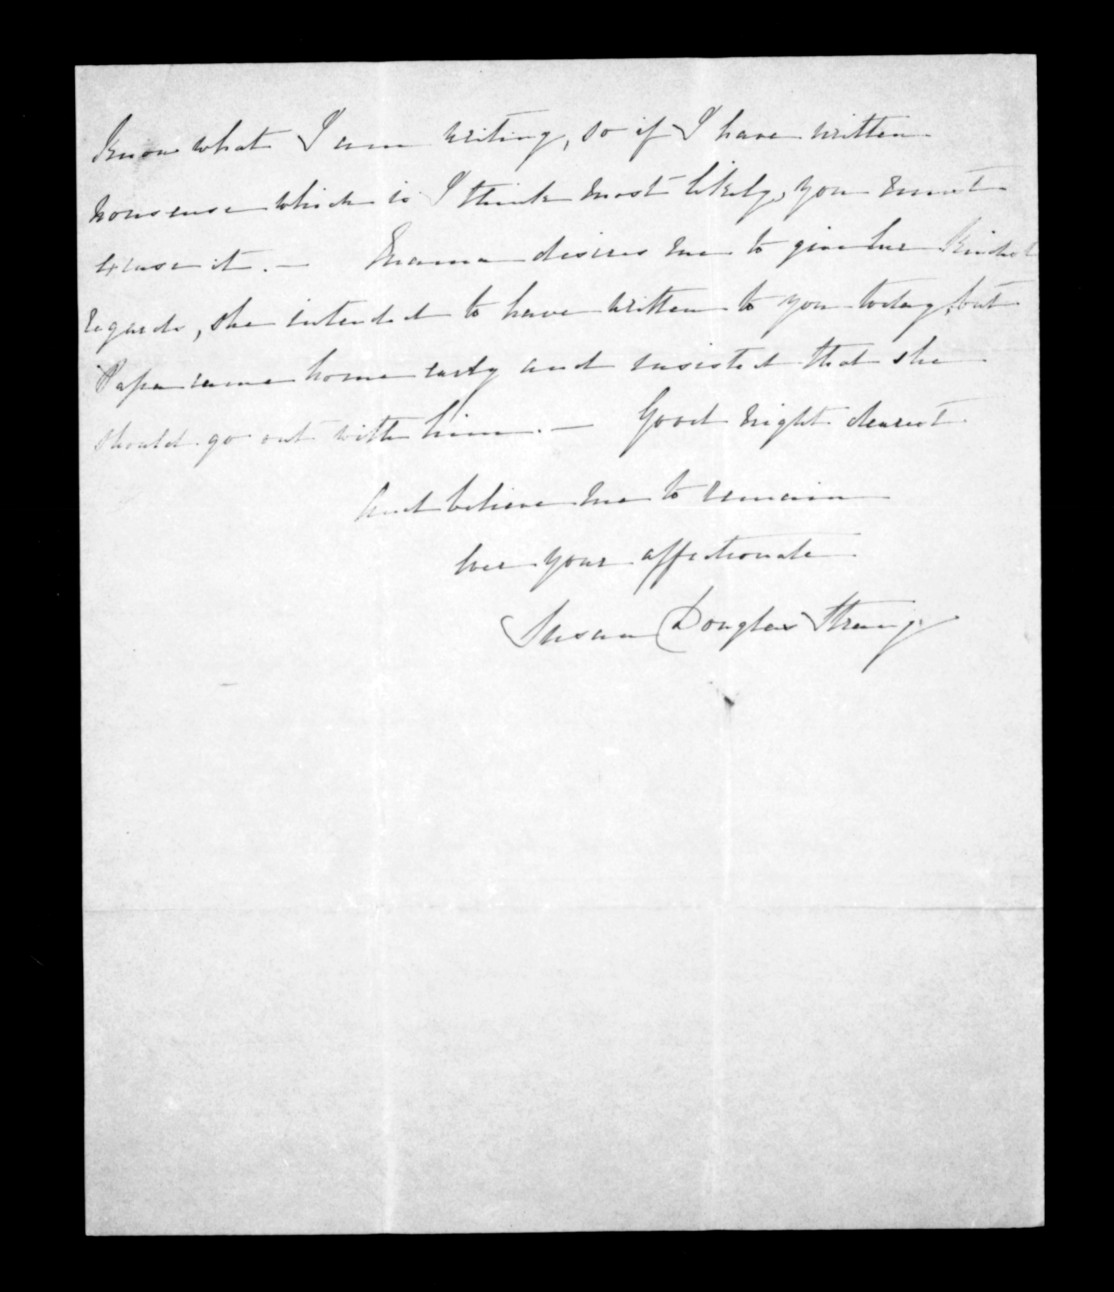 know what I am writing, so if I have written
nonsense which is I think most likely, you must
excuse it. — Mama desires me to give her kindest
regards, she intended to have written to you today, but
Papa came home early and insisted that she
should go out with him. — Good night dearest
And believe me to remain
Ever your affectionate
Susan Douglas Strang